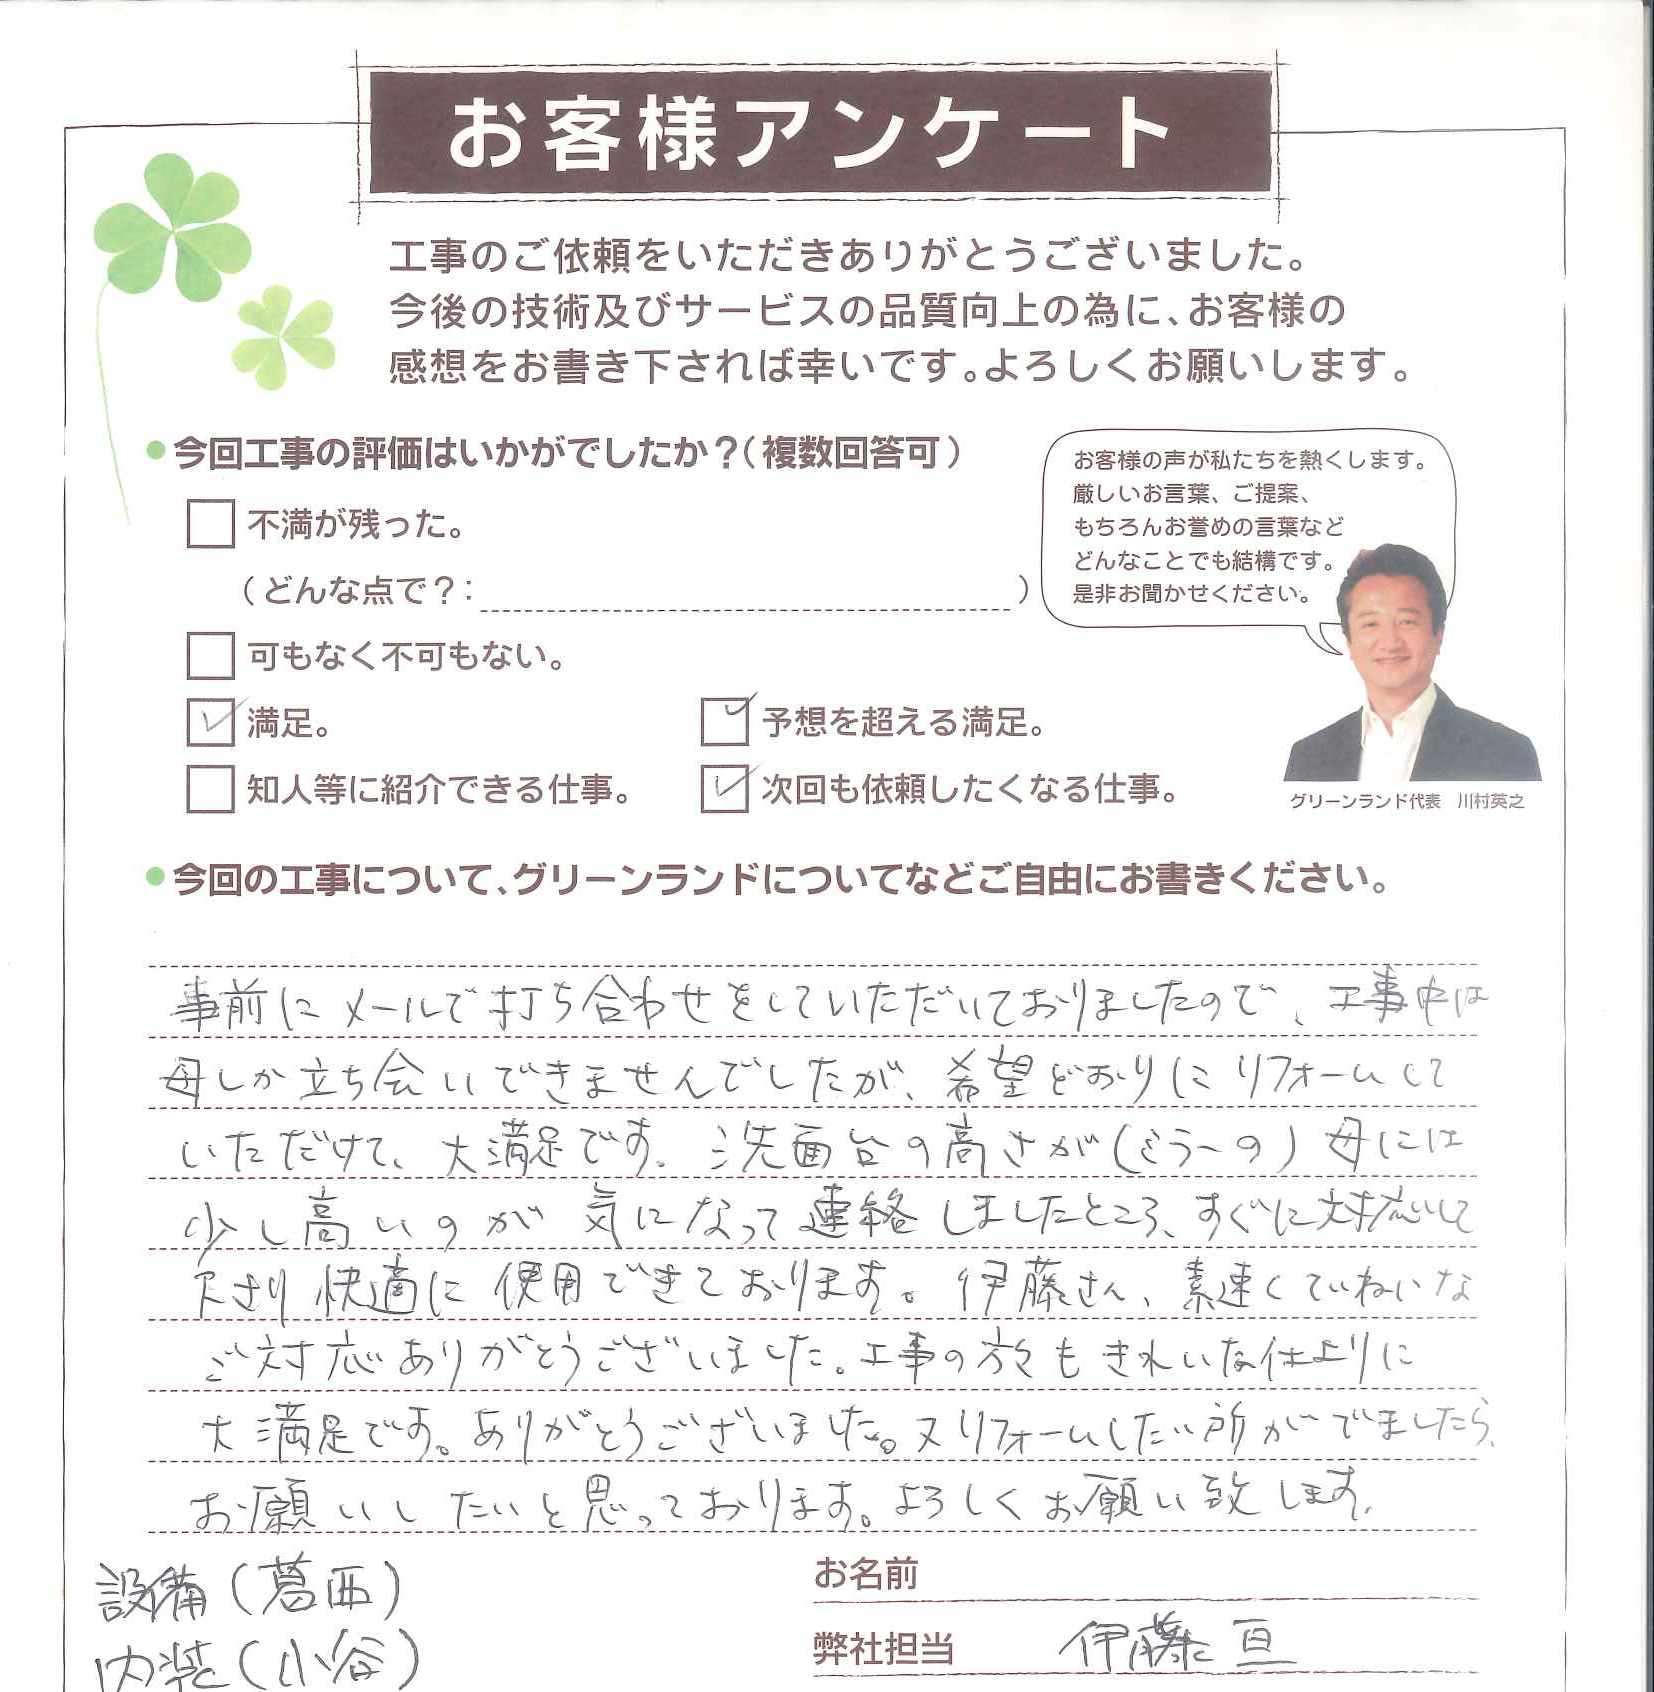 お客様アンケート
工事のご依頼をいただきありがとうございました。
今後の技術及びサービスの品質向上の為に、お客様の
感想をお書き下されば幸いです。よろしくお願いします。
今回工事の評価はいかがでしたか？(複数回答可)
不満が残った。
(どんな点で？: )
可もなく不可もない。
満足。
予想を超える満足。
知人等に紹介できる仕事。
次回も依頼したくなる仕事。
お客様の声が私たちを熱くします。
厳しいお言葉、ご提案、
もちろんお誉めの言葉など
どんなことでも結構です。
是非お聞かせください。
グリーンランド代表　川村英之
今回の工事について、グリーンランドについてなどご自由にお書きください。
事前にメールで打ち合わせをしていただいておりましたので、工事中は
母しか立ち会いできませんでしたが、希望どおりにリフォームして
いただけて、大満足です。洗面台の高さが(ミラーの)母には
少し高いのが気になって連絡しましたところ、すぐに対応して
下さり快適に使用できております。伊藤さん、素速くていねいな
ご対応ありがとうございました。工事の方々もきれいな仕上りに
大満足です。ありがとうございました。又リフォームしたい所がでましたら、
お願いしたいと思っております。よろしくお願い致します。
設備(葛西)
内装(小谷)
お名前
弊社担当 伊藤 亘